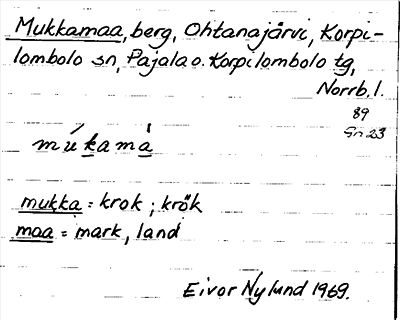 Mukkamaa, berg, Ohtanajärvi, Korpi-
lombolo sn, Pajala o. Korpilombolo tg,
Norrb. l.
89
Gn 23
múkamà
mukka = krok ; krök
maa = mark, land
Eivor Nylund 1969.